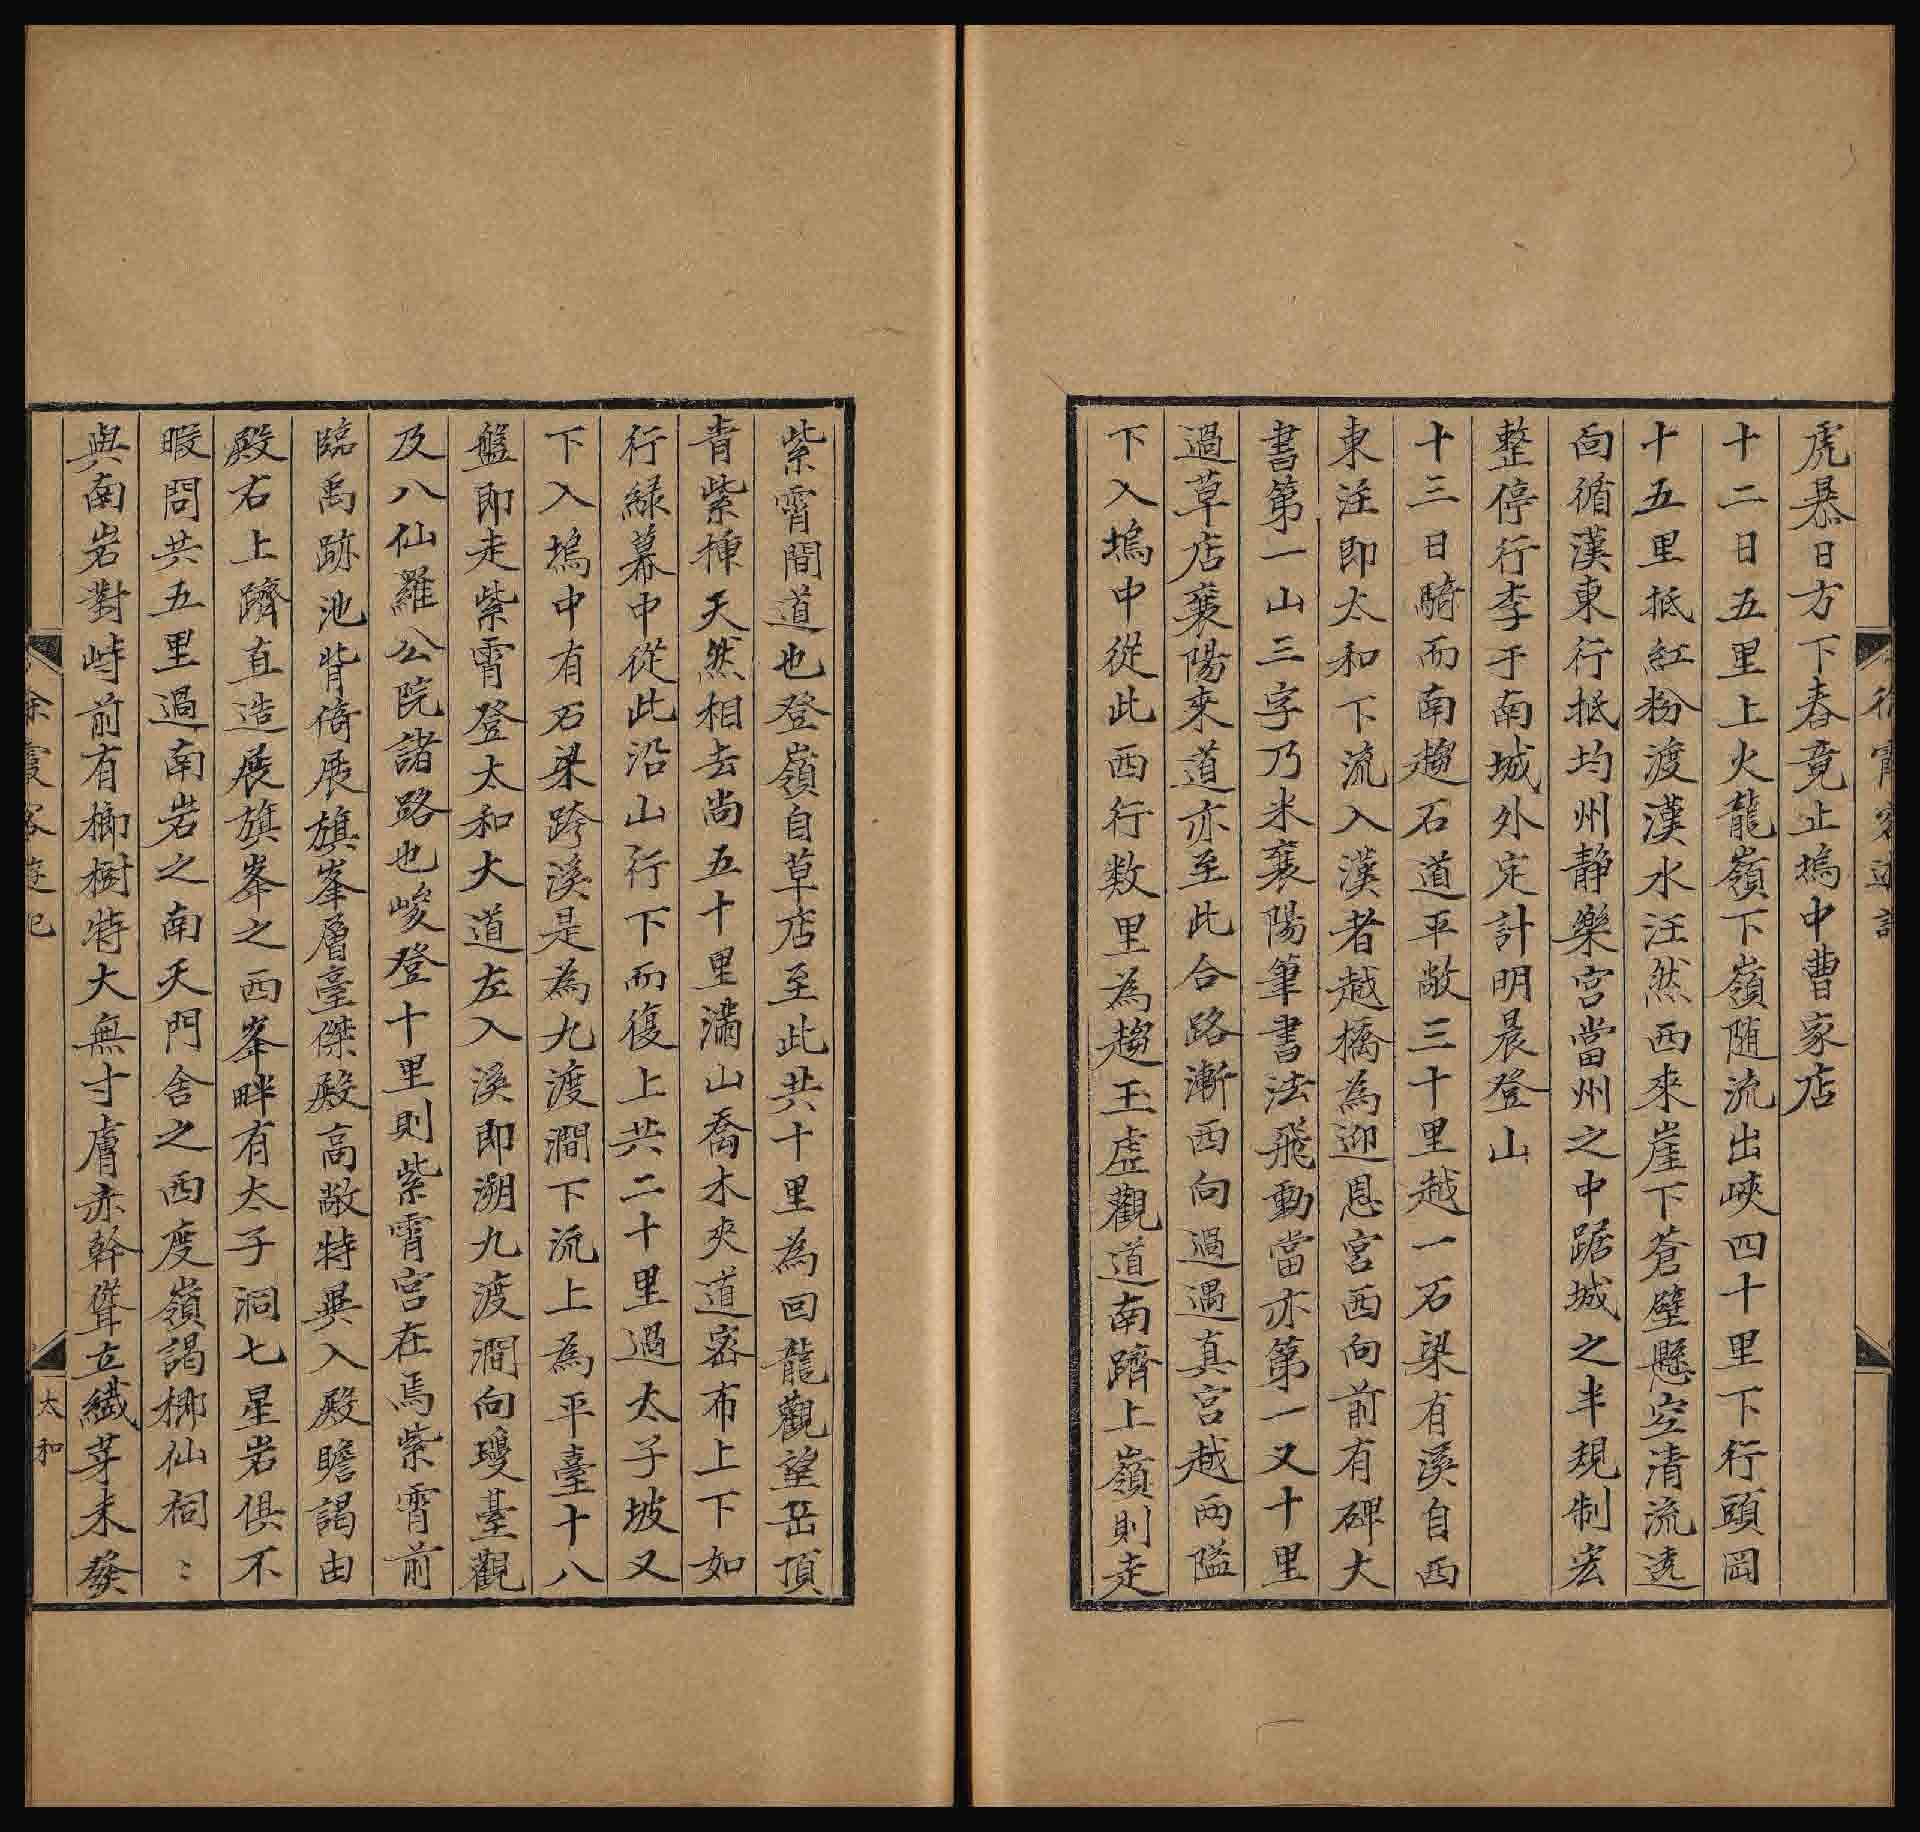 虎暴日方下舂竟止塢中曹家店
十二日五里上火龍嶺下嶺随流出峽四十里下行頭岡
十五里抵紅粉渡漢水汪然西來崖下蒼壁懸空清流遶
面循漢東行抵均州静樂宮當州之中踞城之半規制宏
整停行李于南城外定計明晨登山
十三日騎而南趨石道平敞三十里越一石梁有溪自西
東注即太和下流入漢者越橋為迎恩宮西向前有碑大
書第一山三字乃米襄陽筆書法飛動當亦第一又十里
過草店襄陽來道亦至此合路漸西向過遇真宮越两隘
下入塢中從此西行数里為趨玉虚觀道南躋上嶺則走
紫霄間道也登嶺自草店至此共十里為回龍觀望岳頂
青紫揷天然相去尚五十里滿山喬木夾道密布上下如
行緑幕中從此沿山行下而復上共二十里過太子坡又
下入塢中有石梁跨溪是為九渡澗下流上為平臺十八
盤即走紫霄登太和大道左入溪即溯九渡澗向瓊臺觀
及八仙羅公院諸路也峻登十里則紫霄宮在焉紫霄前
臨禹跡池背倚展旗峯層臺傑殿高敞特異入殿瞻謁由
殿右上躋直造展旗峯之西峯畔有太子洞七星岩俱不
暇問共五里過南岩之南天門舍之西度嶺謁榔仙祠〻
與南岩對峙前有榔樹特大無寸膚赤幹聳立纎芽未發
徐霞客遊記
太和